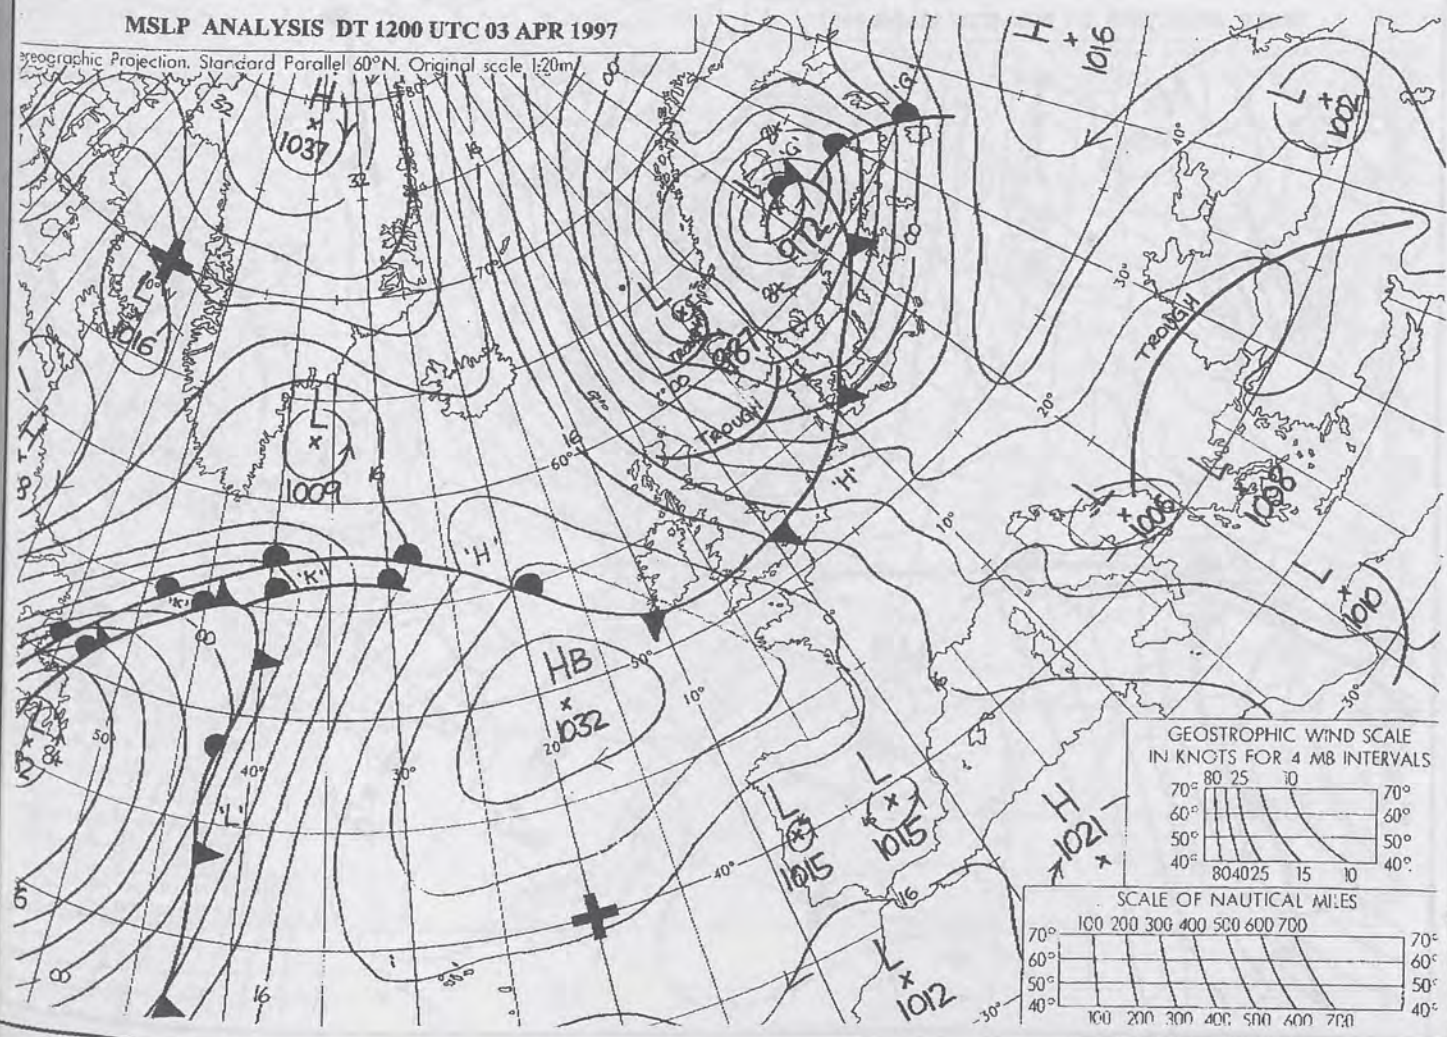 MSLP ANALYSIS DT 1200 UTC 03 APR 1997
Stereographic Projection. Standard Parallel 60°N. Original scale 1:20m
H
1037
32
32
80°
16
H
1016
L
1002
40°
'G'
'G'
972
L
1016
70°
L
TROUGH
TROUGH
TROUGH
30°
20°
L
1009
16
16
60°
'H'
'H'
'K'
'K'
10°
L
1006
L
1008
L
1010
0°
HB
1032
20°
50°
10°
30°
50°
40°
30°
'L'
L
1015
L
1015
40°
16
L
1012
H
1021
30°
16
8
GEOSTROPHIC WIND SCALE
IN KNOTS FOR 4 MB INTERVALS
80 25 10
70° 70°
60° 60°
50° 50°
40° 40°
80 40 25 15 10
SCALE OF NAUTICAL MILES
100 200 300 400 500 600 700
70° 70°
60° 60°
50° 50°
40° 40°
100 200 300 400 500 600 700